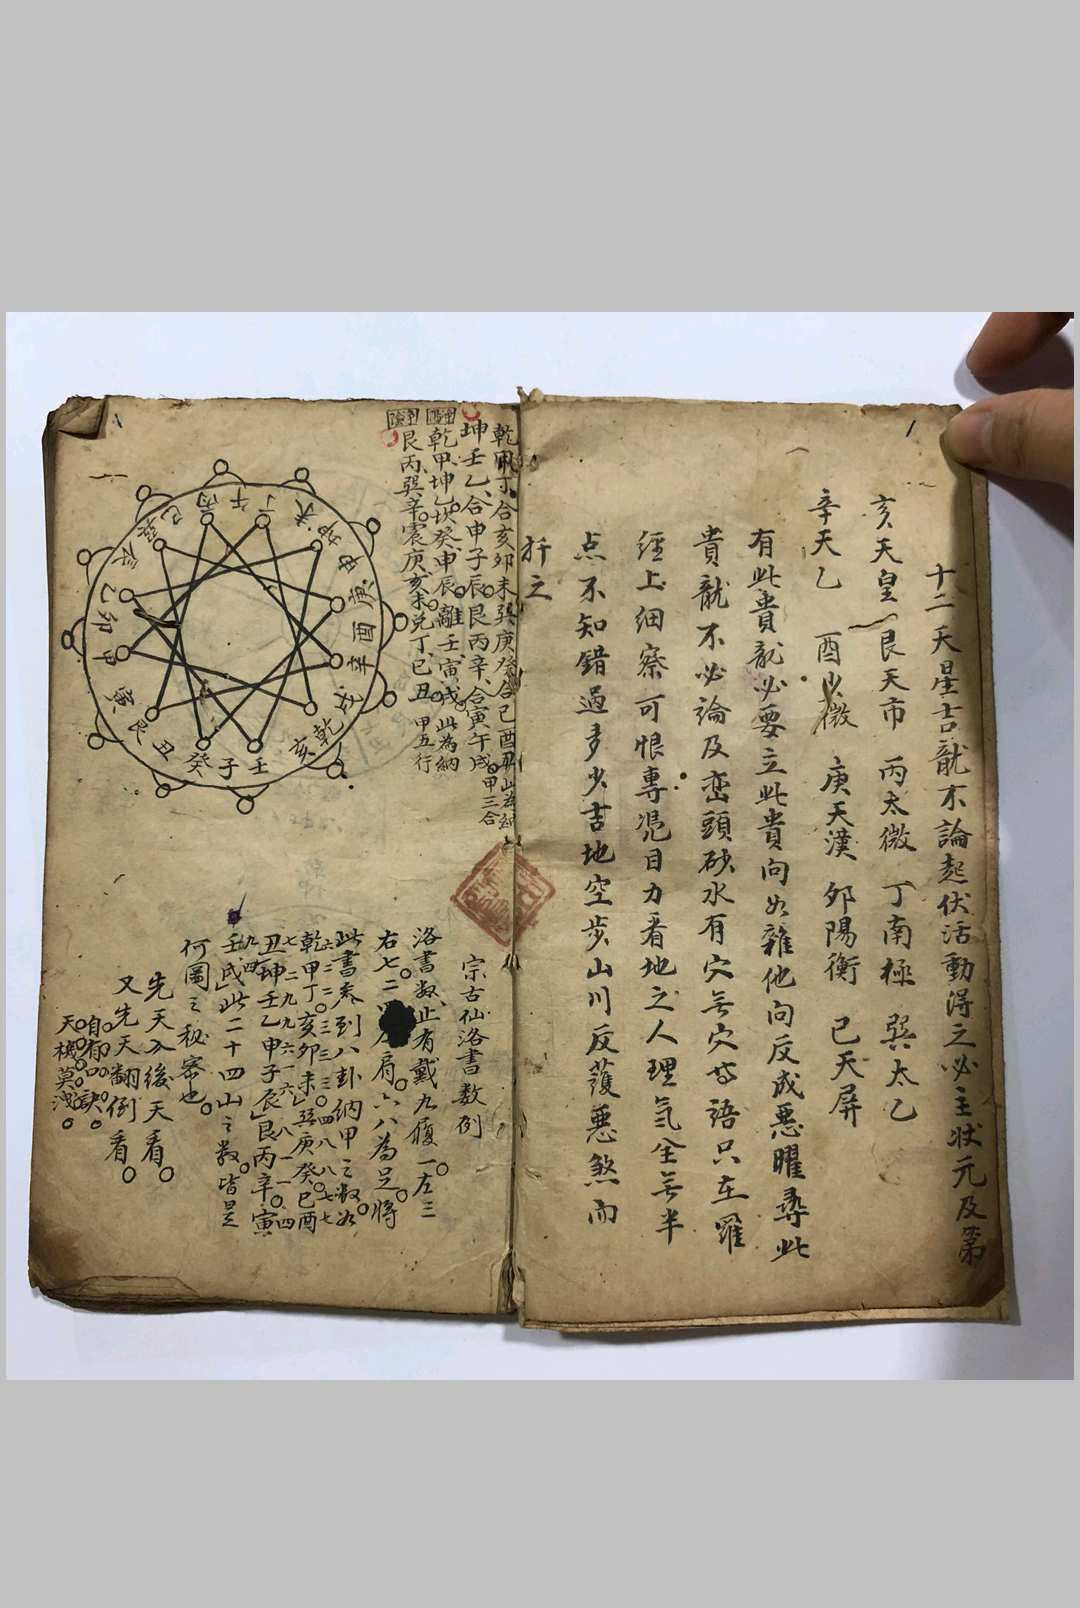 十二天星吉龍不論起伏活動得之必主状元及第
亥天皇 艮天市 丙太微 丁南極 巽太乙
辛天乙 酉少微 庚天漢 夘陽衡 巳天屏
有此貴龍必要立此貴向如雜他向反成悪曜尋此
貴龍不必論及巒頭砂水有穴無穴等語只在羅
經上細察可恨專凴目力看地之人理氣全無半
点不知錯過多少吉地空步山川反護悪煞而
扦之
乾甲丁合亥夘未巽庚癸合巳酉丑此為納
坤壬乙合申子辰艮丙辛合寅午戌甲三合
乾甲坤乙坎癸申辰離壬寅戌此為納
艮丙巽辛震庚亥未兌丁巳丑甲五行
午
丁
未
坤
申
庚
酉
辛
戌
乾
亥
壬
子
癸
丑
艮
寅
甲
卯
乙
辰
巽
巳
丙
宗古仙洛書数例
洛書数止有戴九履一左三
右七二四肩六八為足將
此書裝到八卦納甲之数如
乾甲丁亥卯未巽庚癸巳酉
丑坤壬乙申子辰艮丙辛寅
壬戌此二十四山之数皆是
何圖之秘密也
先天入後天看
又先天翻倒看
自有口訣
天機莫洩